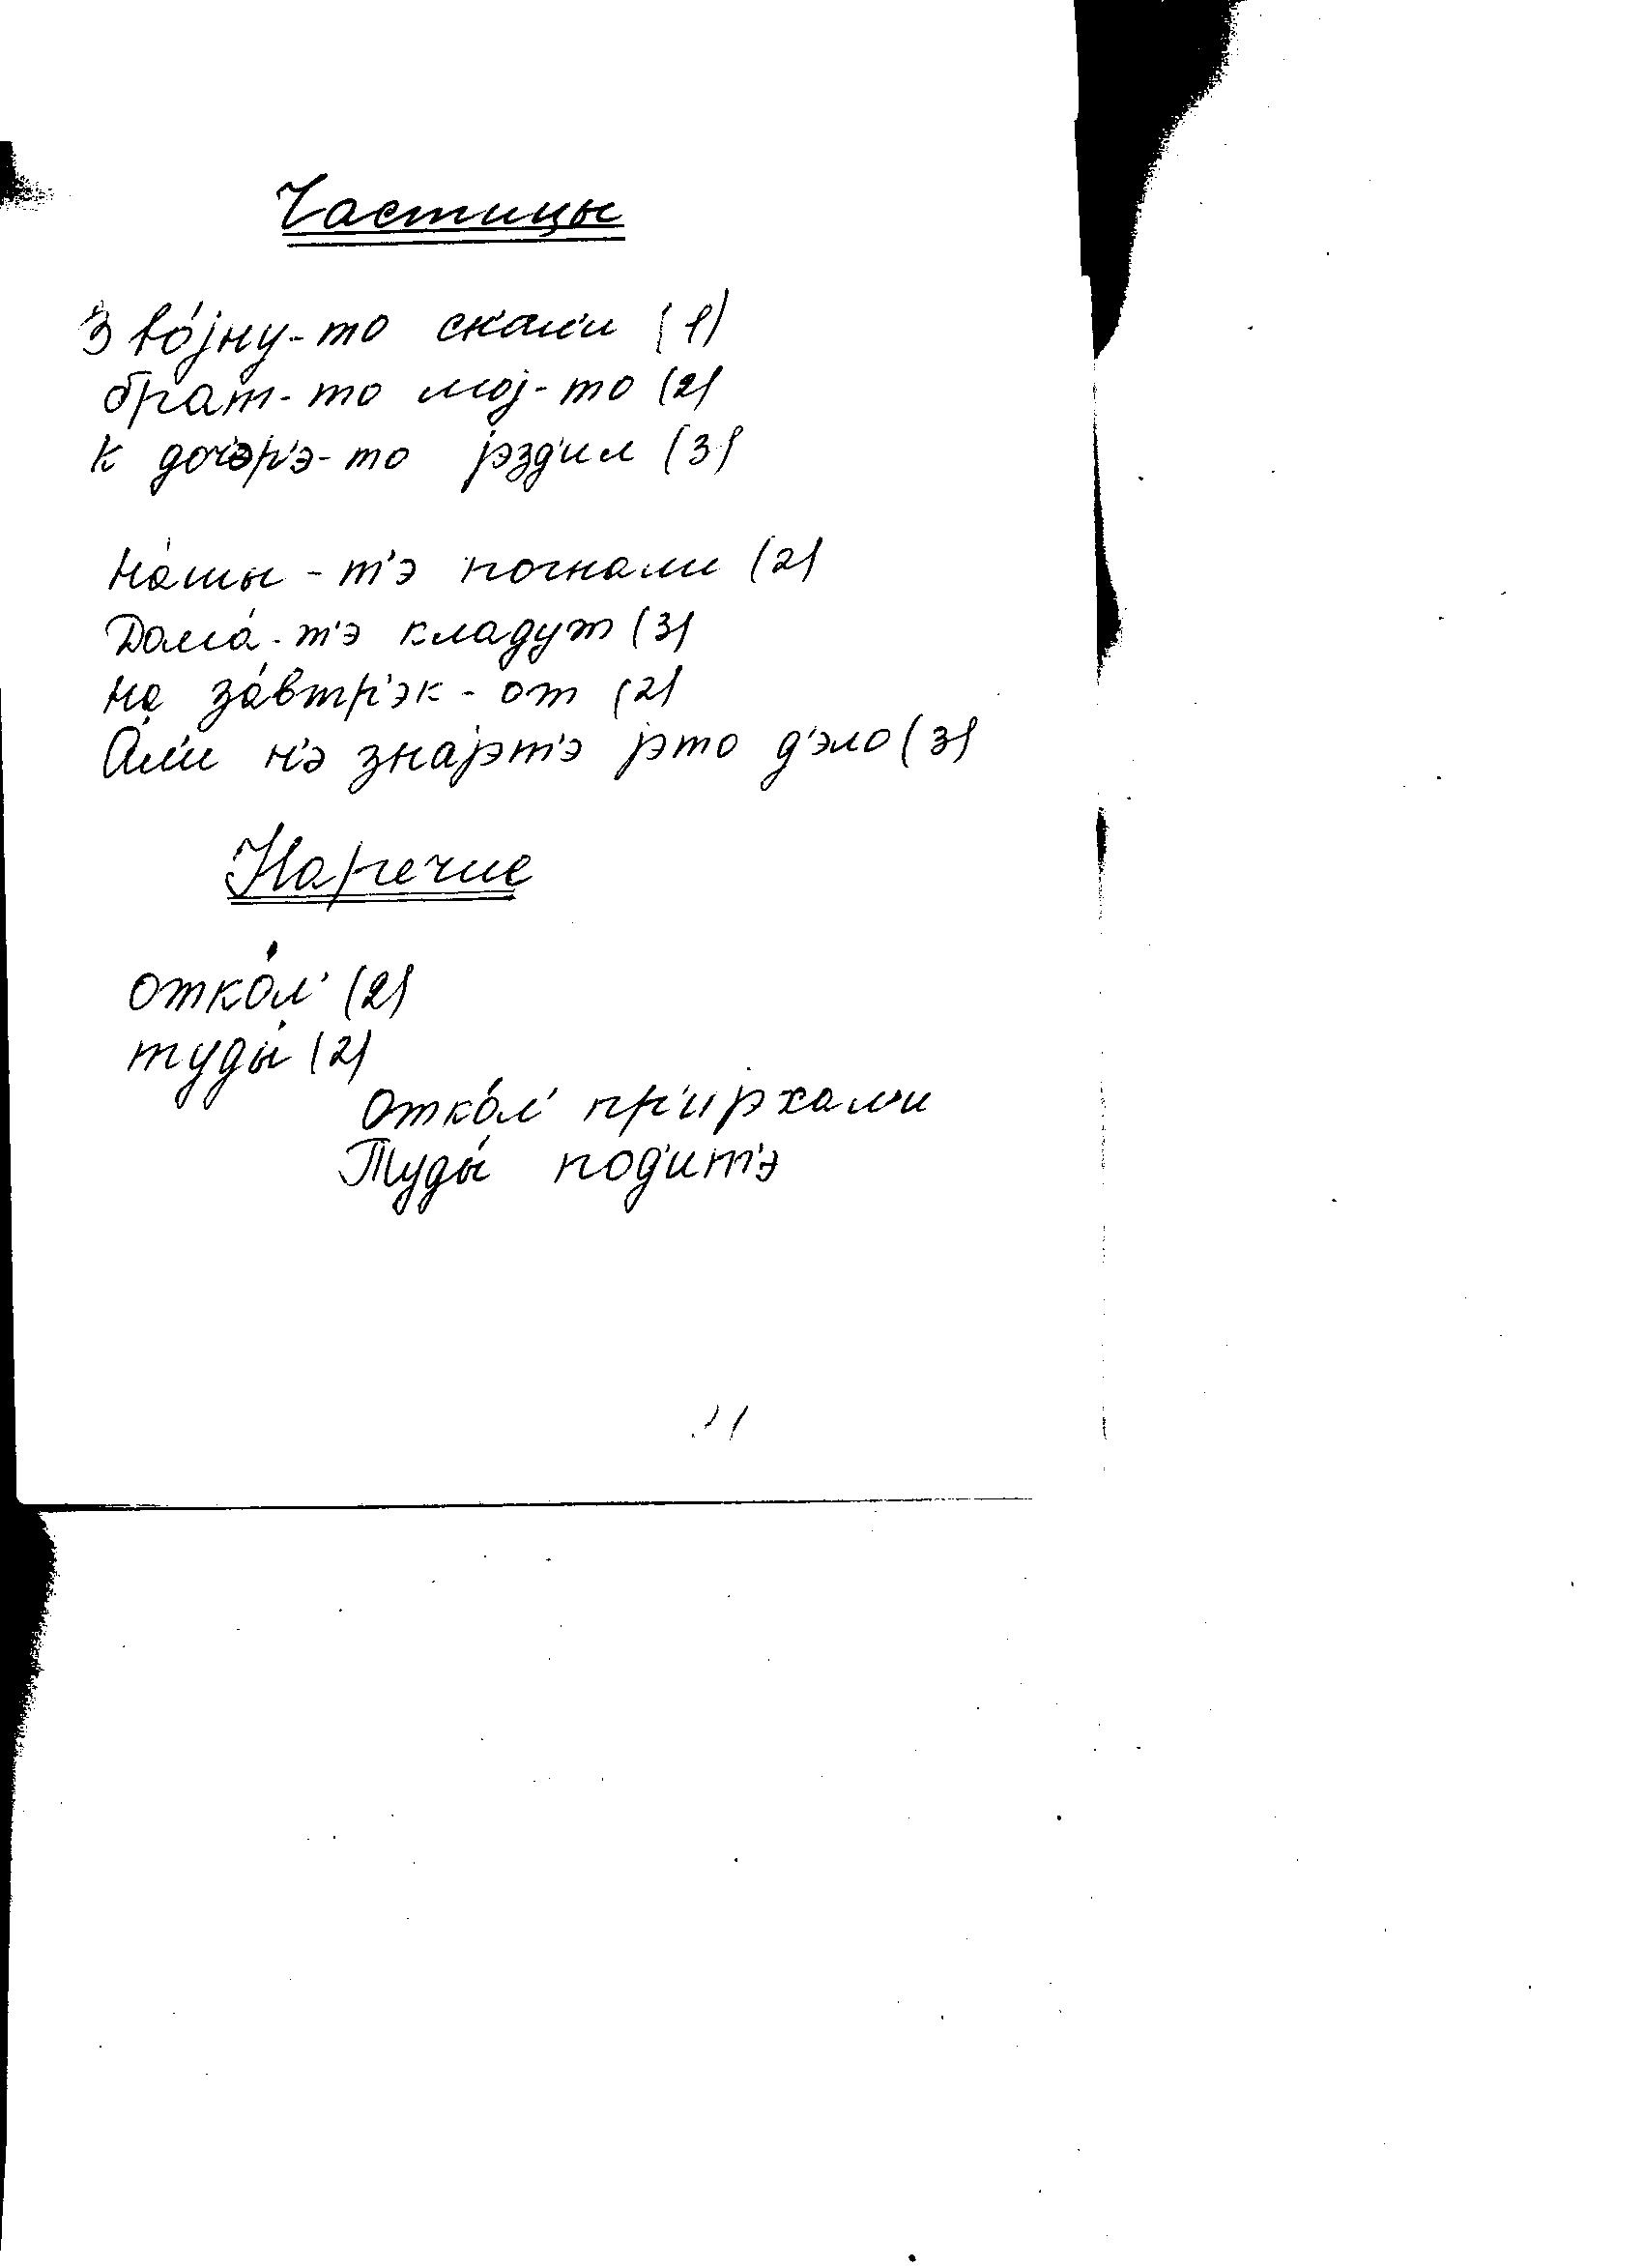 Частицы
В во́јну-то скал'и (1)
брат-то мој-то (2)
К доч'эр'э-то јэзд'ил (3)
На́шы-т'э погнали (2)
Дома́-т'э кладут (3)
на за́втр'эк-от (2)
А́л'и н'э знајэт'э јэто д'эло (3)
Наречие
отко́л' (2)
туды́ (2)
Отко́л' пр'ијэхал'и
Туды́ под'ит'э